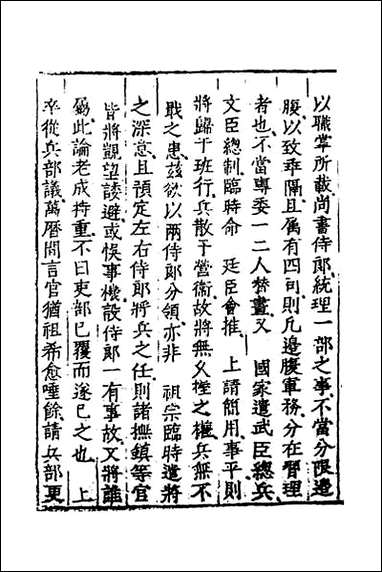 以職掌所載尚書侍郎統理一部之事不當分限邊
腹以致乖隔且属有四司則凢邊腹軍務分在督理
者也不當專委一二人替畫又　國家遣武臣總兵
文臣總制臨時命　廷臣會推　上請簡用事平則
將歸于班行兵散于營衞故將無父握之權兵無不
戢之患茲欲以兩侍郎分領亦非　祖宗臨時遣將
之深意且預定左右侍郎將兵之任則諸撫鎮等官
皆將觀望諉避或悮事機設侍郎一有事故又將誰
屬此論老成持重不曰吏部已覆而遂已之也　上
卒從兵部議萬曆間言官猶祖希愈唾餘請兵部更